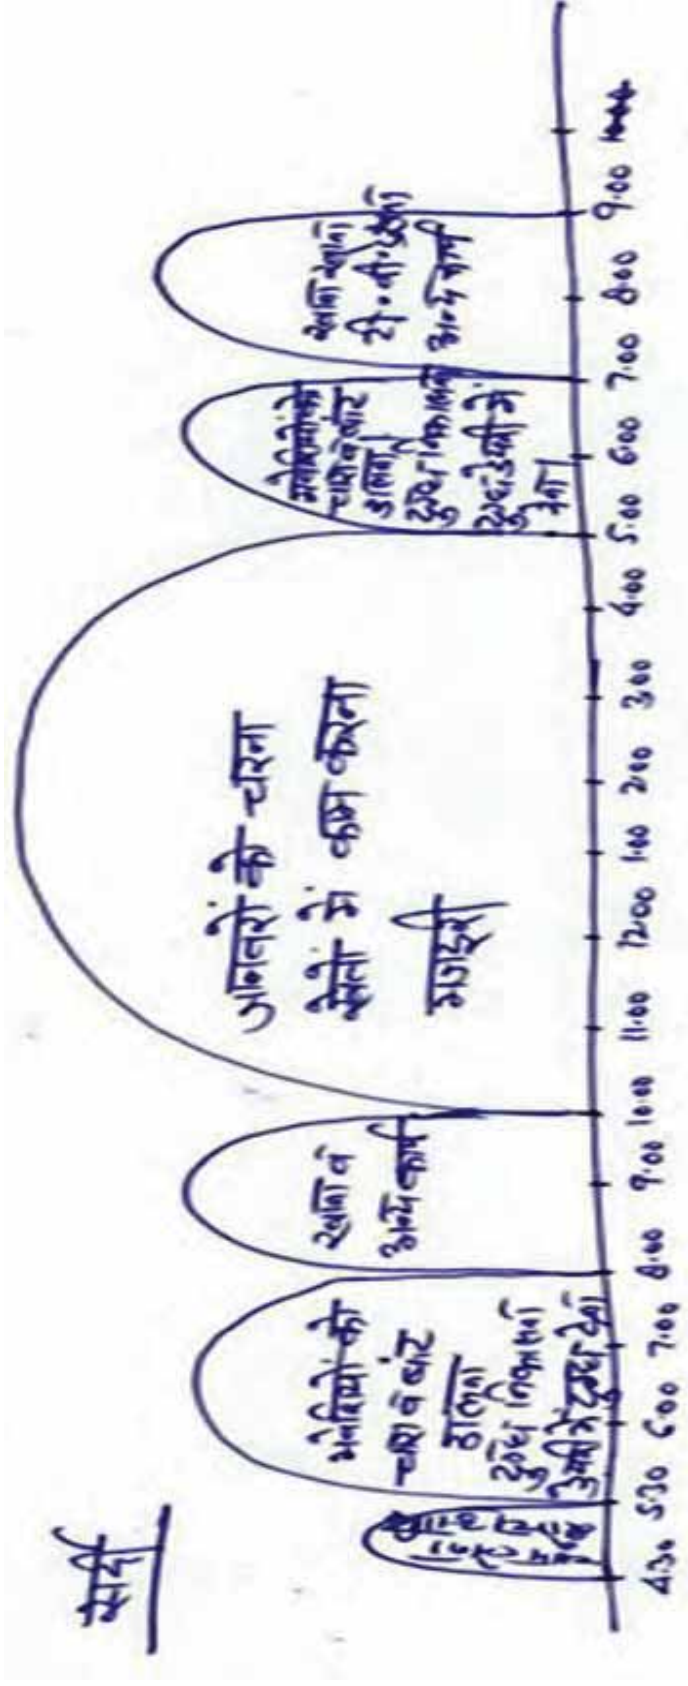 सर्दी
मवेशियों को
चारा व बांट
डालना
दुध निकालना
डेयरी में दुग्ध देना
खाना व
अन्य कार्य
जानवरों को चराना
खेतों में काम करना
मजदूरी
मवेशियों को
चारा व बांट
डालना
दुध निकालना
दुध डेयरी में
देना
खाना खाना
टी.वी. देखना
अन्य कार्य
4:30 5:30 6:00 7:00 8:00 9:00 10:00 11:00 12:00 1:00 2:00 3:00 4:00 5:00 6:00 7:00 8:00 9:00